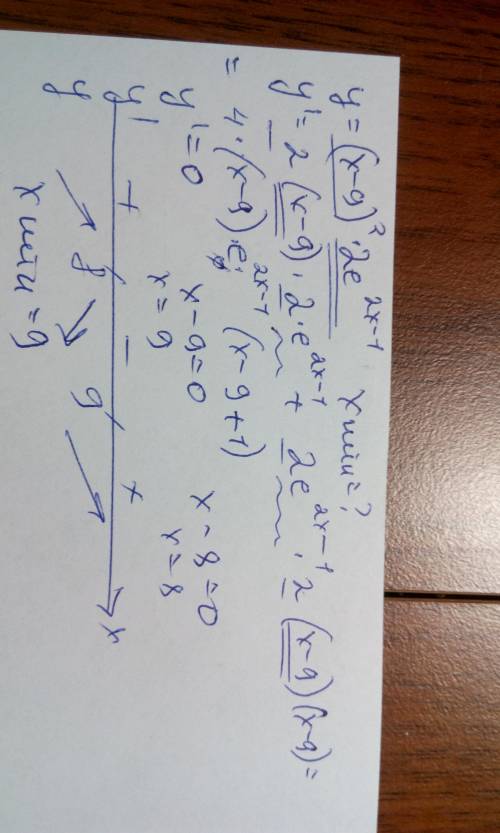 y = (x-9)² · 2e^{2x-1} x min = ?
y' = 2 (x-9) · 2 · e^{2x-1} + 2e^{2x-1} · 2 (x-9)(x-9) =
= 4 · (x-9) · e^{2x-1} (x-9+1)
y' = 0 x-9=0 x-8=0
x=9 x=8
y' + - + x
y 8 9
x min = 9